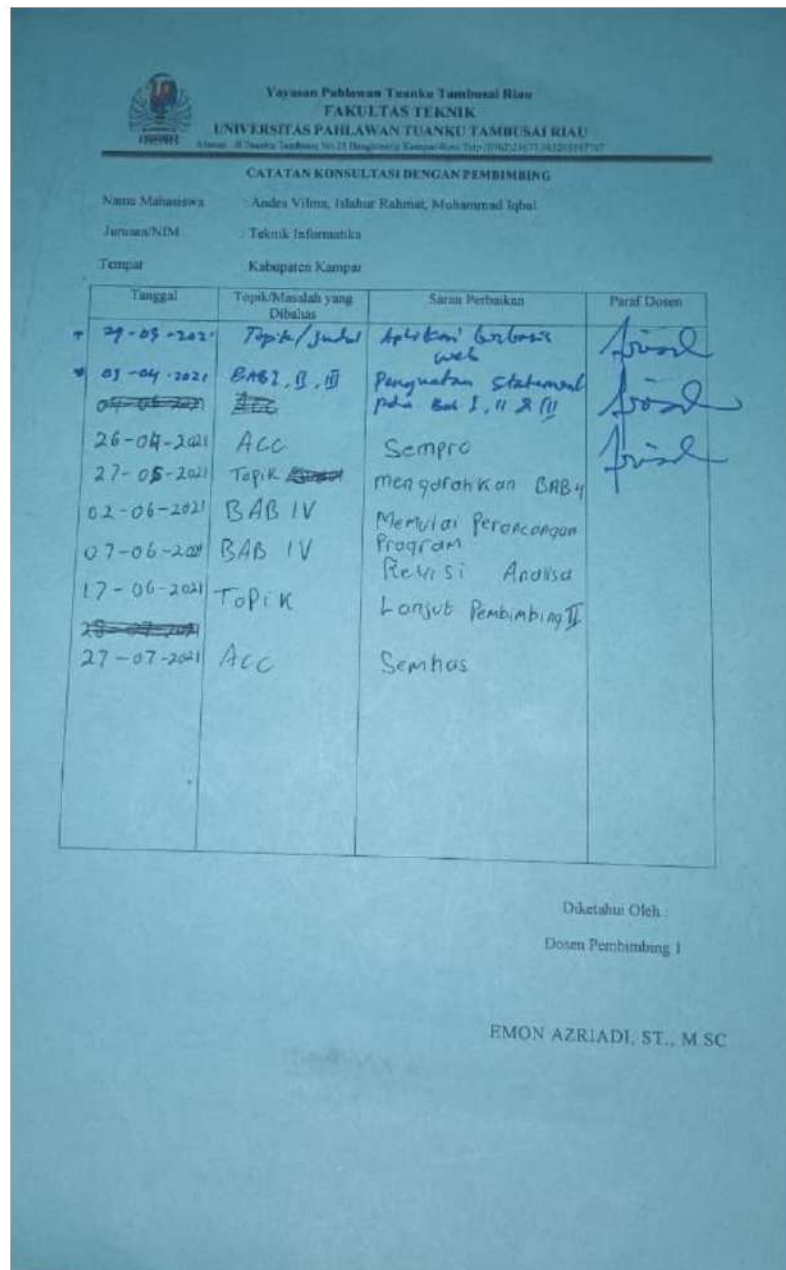 Yayasan Pahlawan Tuanku Tambusai Riau
FAKULTAS TEKNIK
UNIVERSITAS PAHLAWAN TUANKU TAMBUSAI RIAU
CATATAN KONSULTASI DENGAN PEMBIMBING
Nama Mahasiswa : Andes Vilma, Islahur Rahmat, Muhammad Iqbal
Jurusan/NIM : Teknik Informatika
Tempat Kabupaten Kampar
Tanggal Topik/Masalah yang Dibahas Saran Perbaikan Paraf Dosen
29-03-2021 Topik/Judul Aplikasi berbasis web
03-04-2021 BAB I, II, III Penguatan Statement pada Bab I, II & III
26-04-2021 ACC Sempro
27-05-2021 Topik mengarahkan BAB 4
02-06-2021 BAB IV Memulai Perancangan Program
07-06-2021 BAB IV Revisi Analisa
17-06-2021 Topik Lanjut Pembimbing II
27-07-2021 Acc Semhas
Diketahui Oleh :
Dosen Pembimbing 1
EMON AZRIADI, ST., M.SC